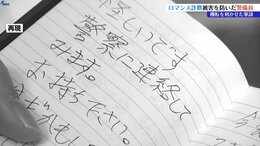 ロマンス詐欺被害を防いだ警備員
機転を利かせた筆談
再現
怪しいです
警察に連絡して
みます。
お待ちください。